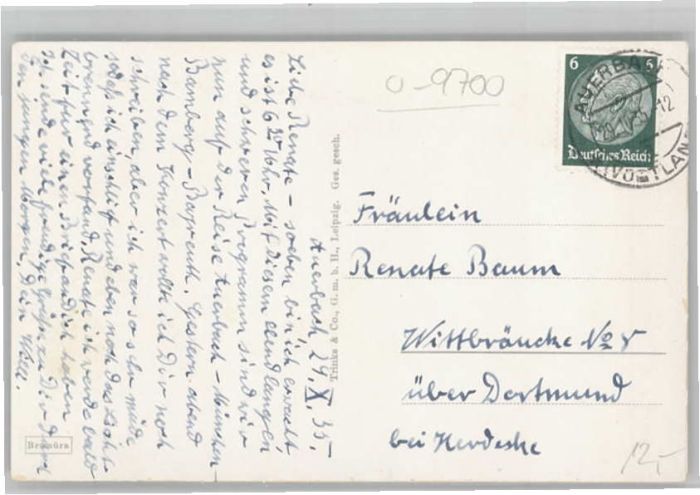 Auerbach 29. X. 35.
Liebe Renate – soeben bin ich erwacht
es ist 6 20 Uhr. Mit diesem endlangen
und schweren Programm sind wir
nun auf der Reise Auerbach – München –
Bamberg – Bayreuth. Gestern abend
nach dem Konzert wollte ich Dir noch
schreiben, aber ich war so sehr müde
sodass ich einschlief und eben noch das Licht
brennend vorfand. Renate ich werde bald
Zeit für einen Brief an Dich haben
ich sende viele freudige Grüsse zu Dir
den jungen Morgen, Dein Willi.
Bromüra
Trinks & Co., G. m. b. H., Leipzig. Ges. gesch.
0-9700
6 6
Deutsches Reich
AUERBACH
(VOGTLAND)
12
Fräulein
Renate Baum
Wittbräucke No 8
über Dortmund
bei Herdecke
12,-